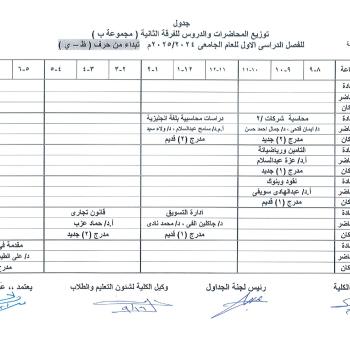 جدول
توزيع المحاضرات والدروس للفرقة الثانية ( مجموعة ب )
للفصل الدراسى الاول للعام الجامعى ٢٠٢٥/٢٠٢٤م تبدأ من حرف ( ظ - ي )
٩-٨ ١٠-٩ ١١-١٠ ١٢-١١ ١-١٢ ٢-١ ٣-٢ ٤-٣ ٥-٤ ٦-٥
محاسبة شركات /٢ دراسات محاسبية بلغة انجليزية
د/ ايمان فتحى ، د/ جمال احمد حسن أ.م.د/ سامح عبدالسلام ، د/ ولاء سيد
مدرج (٢) جديد مدرج (٢) قديم
التامين ورياضياتة
أ.د/ عزة عبدالسلام
مدرج (١) قديم
نقود وبنوك
أ.د/ عبدالهادى سويفى
مدرج (١) قديم
ادارة التسويق قانون تجارى
د/ جاكلين الفي ، د/ محمد نادى أ.د/ حماد عزب
مدرج (١) قديم مدرج (٢) جديد
مقدمة في
د/ على
مدرج
الكلية رئيس لجنة الجداول وكيل الكلية لشئون التعليم والطلاب يعتمد ،،